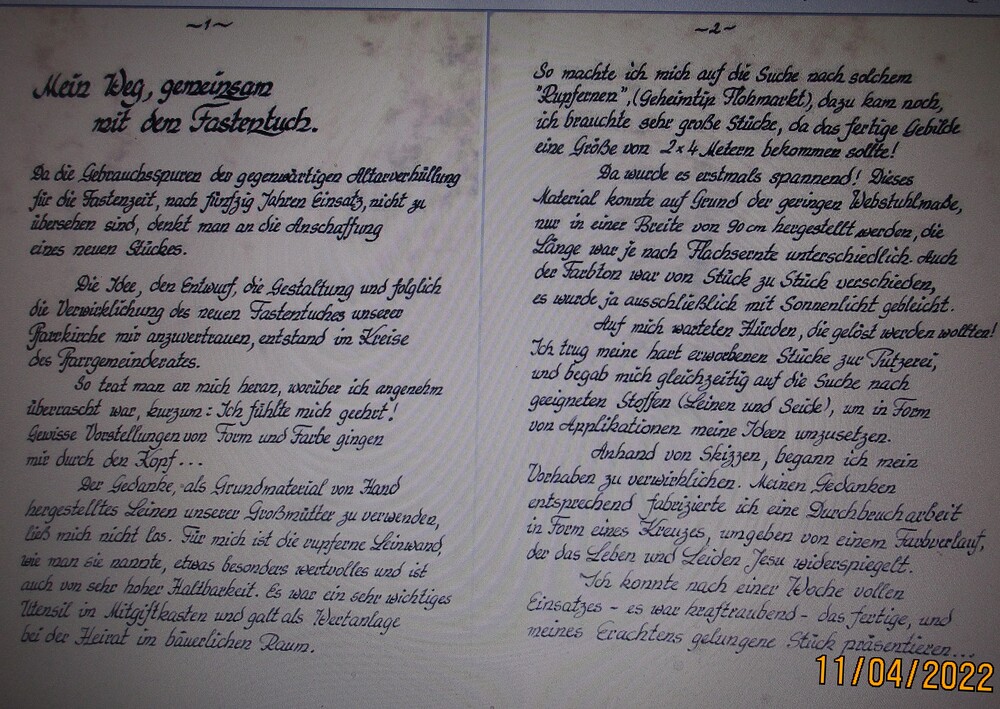 ~1~
Mein Weg, gemeinsam
mit dem Fastentuch.
Da die Gebrauchsspuren der gegenwärtigen Altarverhüllung
für die Fastenzeit, nach fünfzig Jahren Einsatz, nicht zu
übersehen sind, denkt man an die Anschaffung
eines neuen Stückes.
Die Idee, den Entwurf, die Gestaltung und folglich
die Verwirklichung des neuen Fastentuches unserer
Pfarrkirche mir anzuvertrauen, entstand im Kreise
des Pfarrgemeinderates.
So trat man an mich heran, worüber ich angenehm
überrascht war, kurzum: Ich fühlte mich geehrt!
Gewisse Vorstellungen von Form und Farbe gingen
mir durch den Kopf...
Der Gedanke, als Grundmaterial von Hand
hergestelltes Leinen unserer Großmütter zu verwenden,
ließ mich nicht los. Für mich ist die rupferne Leinwand,
wie man sie nannte, etwas besonders wertvolles und ist
auch von sehr hoher Haltbarkeit. Es war ein sehr wichtiges
Utensil im Mitgiftkasten und galt als Wertanlage
bei der Heirat im bäuerlichen Raum.
~2~
So machte ich mich auf die Suche nach solchem
"Rupfernen", (Geheimtip Flohmarkt), dazu kam noch,
ich brauchte sehr große Stücke, da das fertige Gebilde
eine Größe von 2x4 Metern bekommen sollte!
Da wurde es erstmals spannend! Dieses
Material konnte auf Grund der geringen Webstuhlmaße,
nur in einer Breite von 90 cm hergestellt werden, die
Länge war je nach Flachsernte unterschiedlich. Auch
der Farbton war von Stück zu Stück verschieden,
es wurde ja ausschließlich mit Sonnenlicht gebleicht.
Auf mich warteten Hürden, die gelöst werden wollten!
Ich trug meine hart erworbenen Stücke zur Putzerei,
und begab mich gleichzeitig auf die Suche nach
geeigneten Stoffen (Leinen und Seide), um in Form
von Applikationen meine Ideen umzusetzen.
Anhand von Skizzen, begann ich mein
Vorhaben zu verwirklichen. Meinen Gedanken
entsprechend fabrizierte ich eine Durchbrucharbeit
in Form eines Kreuzes, umgeben von einem Farbverlauf,
der das Leben und Leiden Jesu widerspiegelt.
Ich konnte nach einer Woche vollen
Einsatzes - es war kraftraubend - das fertige, und
meines Erachtens gelungene Stück präsentieren...
11/04/2022